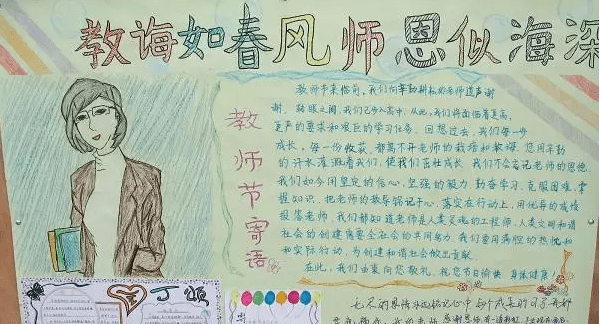 教诲如春风师恩似海深
教师节寄语
教师节来临前,我们向辛勤耕耘的老师道声谢
谢。转眼之间,我们已步入高中,从此,我们将面临着更高、
更严的要求和艰巨的学习任务。回想过去,我们每一步
成长,每一份收获,都离不开老师的栽培和教诲。您用辛勤
的汗水灌溉着我们,使我们茁壮成长。我们不会忘记老师的恩德,
我们如今用坚定的信心,坚强的毅力,勤奋学习,克服困难,掌
握知识,把老师的教导铭记于心,落实在行动上,用优异的成绩
报答老师。我们都知道老师是人类灵魂的工程师,人类文明和谐
社会的创建需要全社会的共同努力,我们要用满腔的热忱和
和实际行动,为创建和谐社会做出贡献。
在此,我们由衷向您敬礼,祝您节日愉快,身体健康!